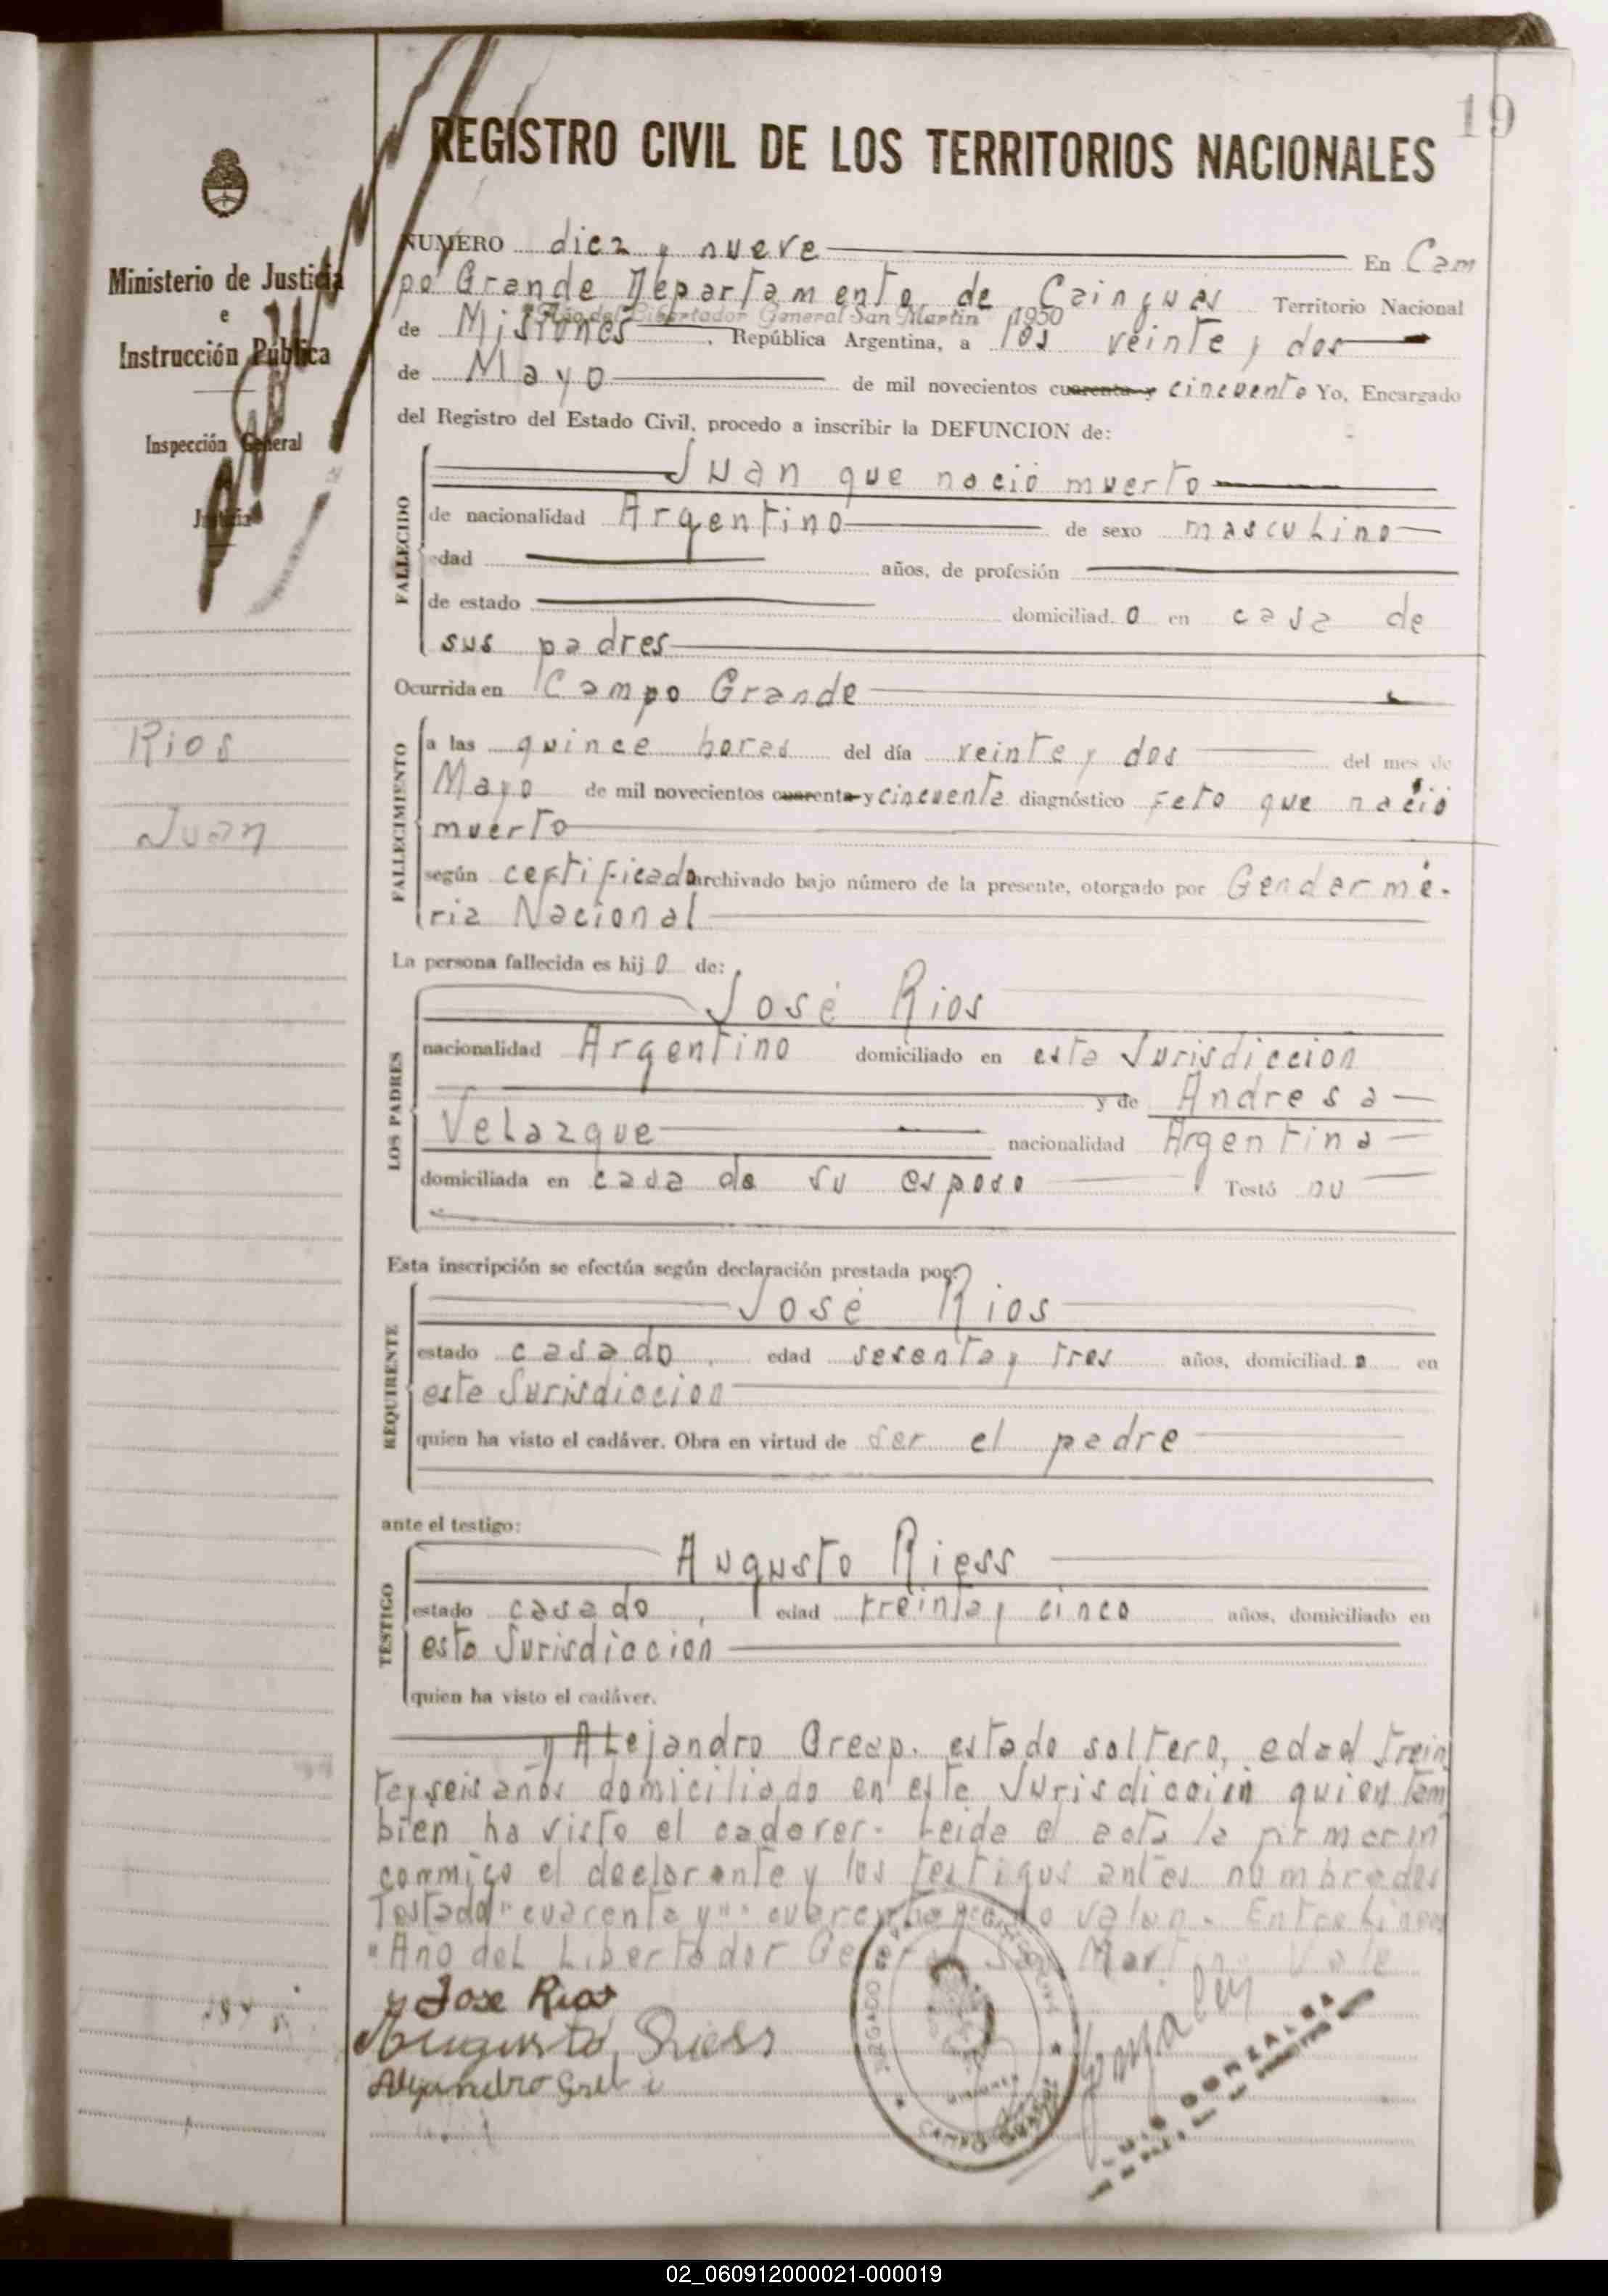 19
REGISTRO CIVIL DE LOS TERRITORIOS NACIONALES
Ministerio de Justicia
e
Instrucción Pública
Inspección General
Justicia
Rios
Juan
NUMERO diez y nueve En Cam
po Grande Departamento de Cainguas Territorio Nacional
"Año del Libertador General San Martin 1950
de Misiones, República Argentina, a los veinte y dos
de Mayo de mil novecientos cuarenta y cincuenta Yo, Encargado
del Registro del Estado Civil, procedo a inscribir la DEFUNCION de:
FALLECIDO
Juan que nació muerto
de nacionalidad Argentino de sexo masculino
edad años, de profesión
de estado domiciliad.o en casa de
sus padres
Ocurrida en Campo Grande
FALLECIMIENTO
a las quince horas del día veinte y dos del mes de
Mayo de mil novecientos cuarenta y cincuenta diagnóstico Feto que nació
muerto
según certificado archivado bajo número de la presente, otorgado por Genderme-
ria Nacional
La persona fallecida es hijo de:
LOS PADRES
José Rios
nacionalidad Argentino domiciliado en esta Jurisdiccion
y de Andresa
Velazque nacionalidad Argentina
domiciliada en casa de su esposo Testó no
Esta inscripción se efectúa según declaración prestada por:
REQUIRENTE
José Rios
estado casado, edad sesenta y tres años, domiciliad.o en
esta Jurisdiccion
quien ha visto el cadáver. Obra en virtud de ser el padre
ante el testigo:
TESTIGO
Augusto Riess
estado casado, edad treinta y cinco años, domiciliado en
esta Jurisdiccion
quien ha visto el cadáver.
y Alejandro estado soltero, edad trein
ta y seis años domiciliado en esta Jurisdiccion quien tam
bien ha visto el cadaver. Leida el acta la firmaron
conmigo el declarante y los testigos antes nombrados
Testado "cuarenta y" "cuarenta y" no valen. Entre Lineas
"Año del Libertador General San Martin Vale
Jose Rios
Augusto Riess
Alejandro
JUZGADO DE PAZ
MISIONES
CAMPO GRANDE
Gonzalez
LUIS GONZALEZ
02_060912000021-000019